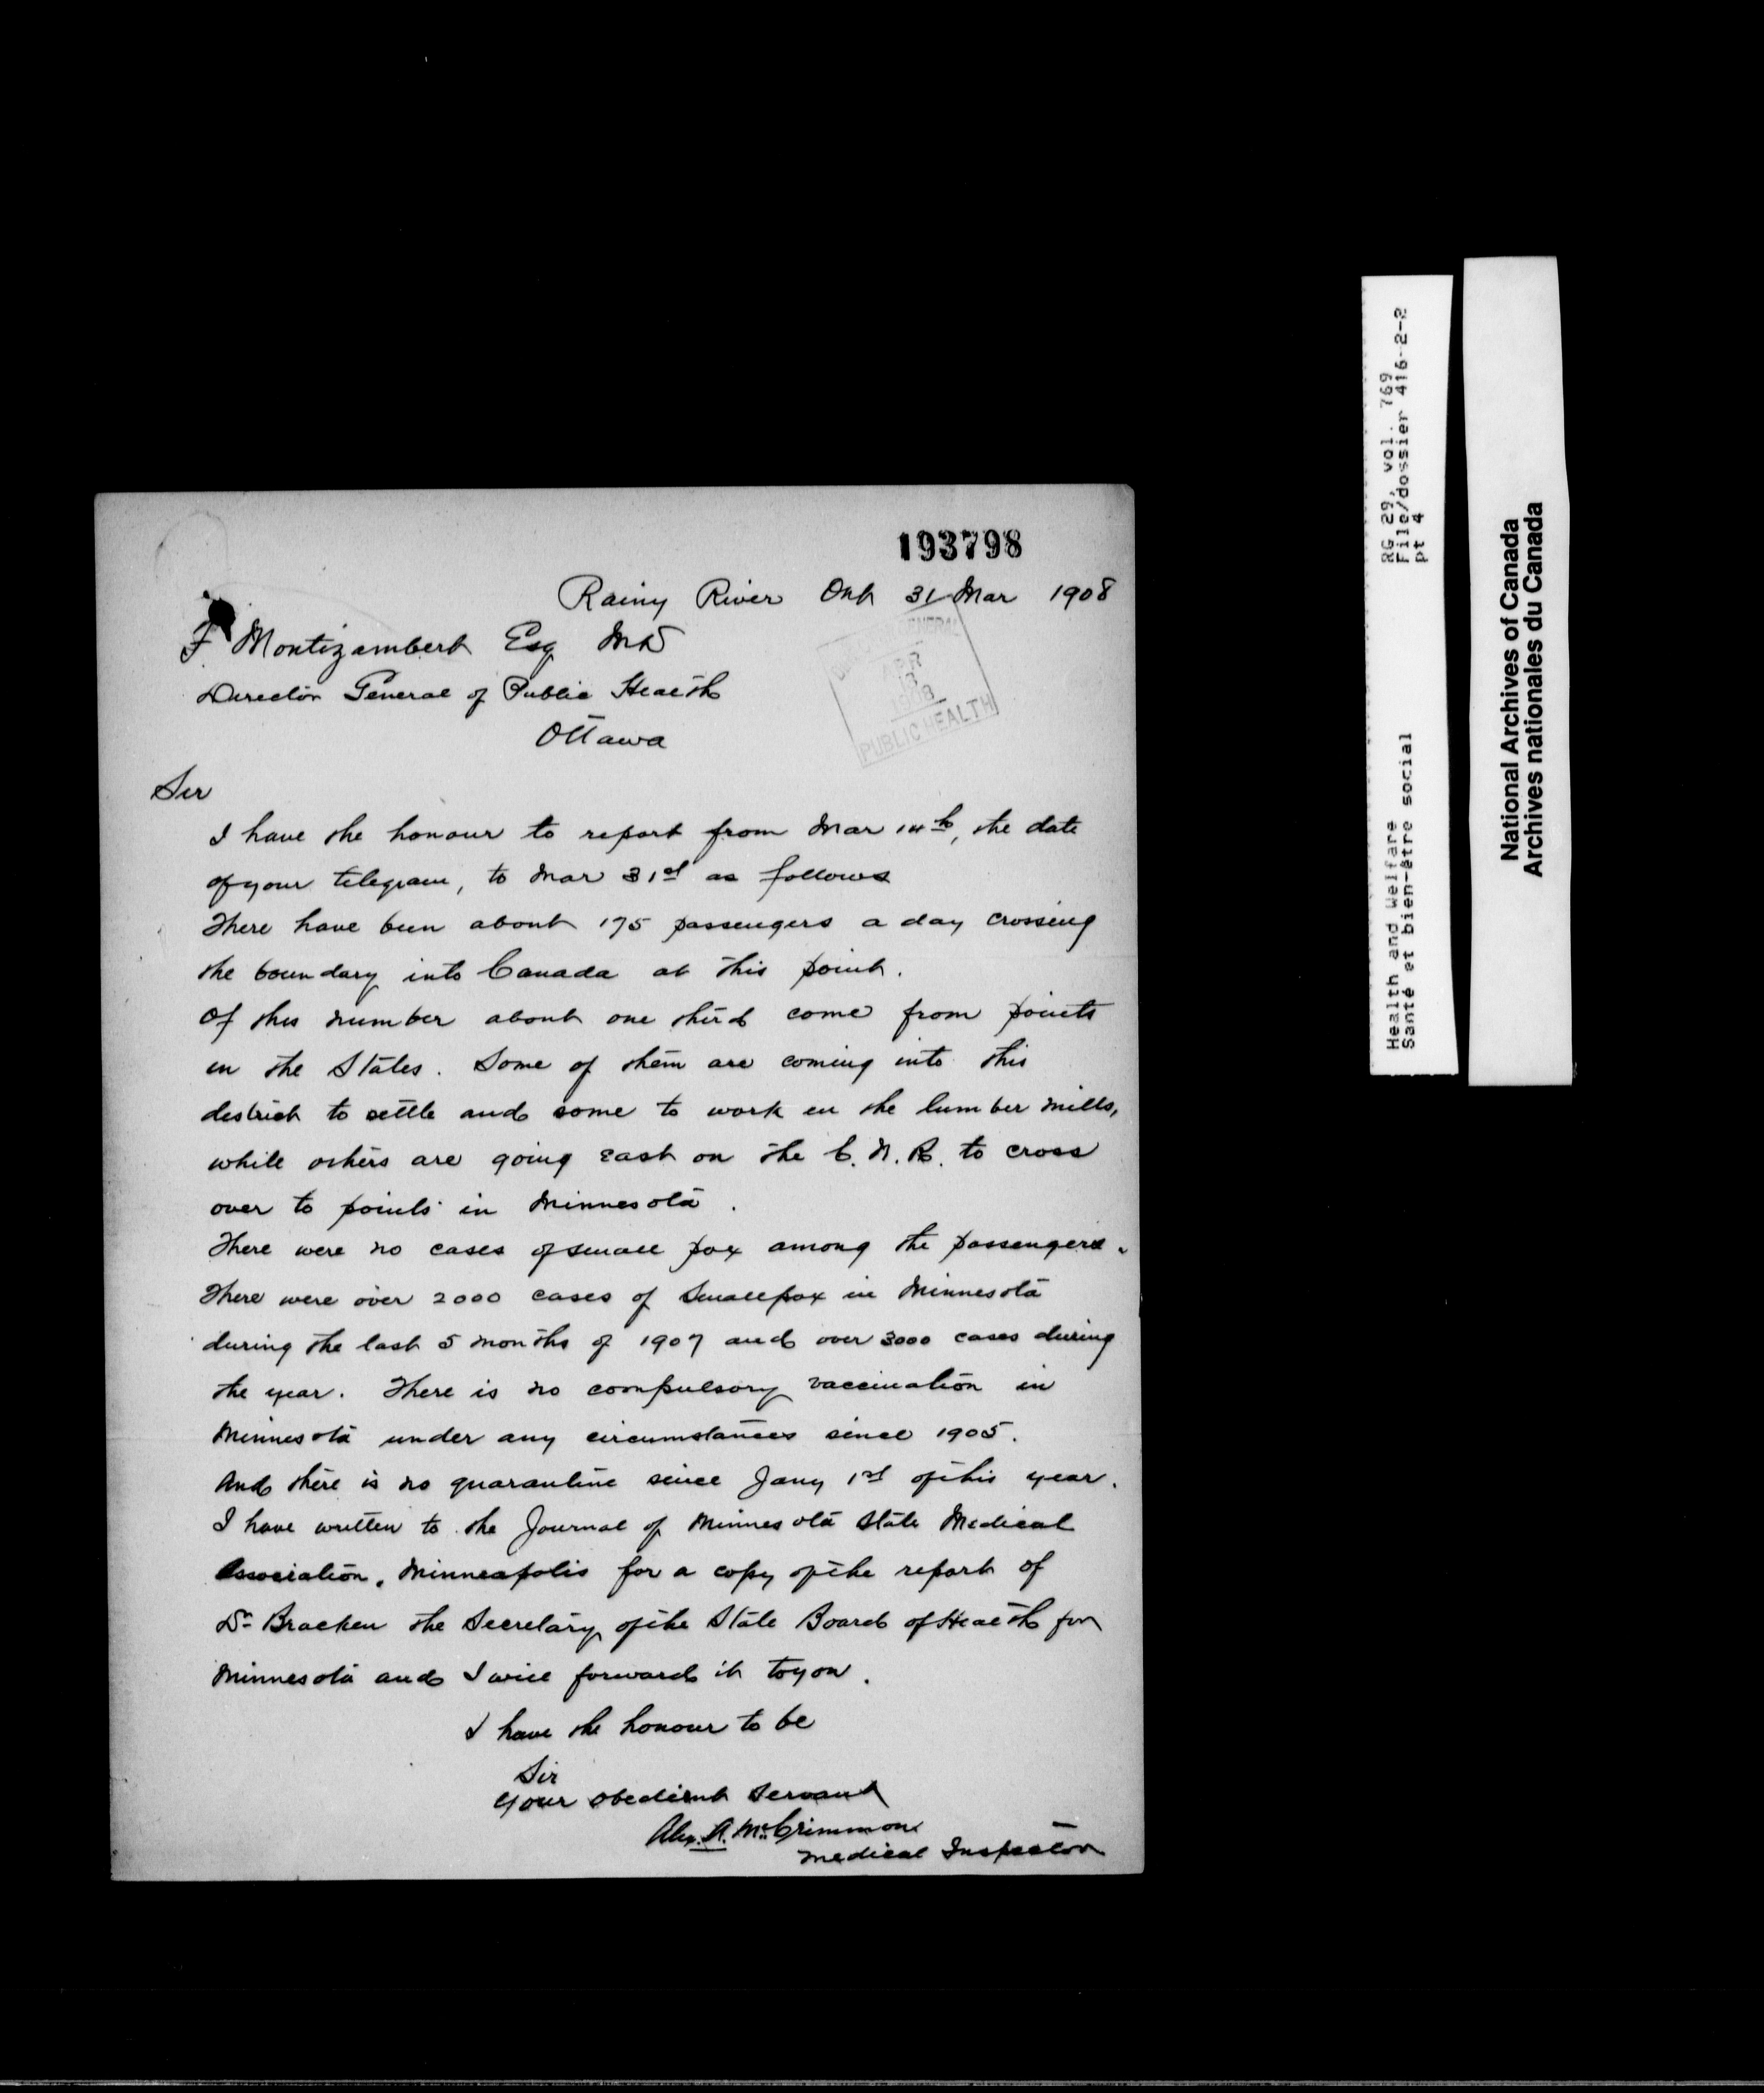 193798
Rainy River Ont 31 Mar 1908
F Montizambert Esq MD
Director General of Public Health
Ottawa
GENERAL
APR
1908
PUBLIC HEALTH
Sir
I have the honour to report from Mar 14th, the date
of your telegram, to Mar 31st as follows
There have been about 175 passengers a day crossing
the boundary into Canada at this point.
Of this number about one third come from points
in the States. Some of them are coming into this
district to settle and some to work in the lumber mills,
while others are going east on the C. N. R. to cross
over to points in Minnesota.
There were no cases of small pox among the passengers.
There were over 2000 cases of Smallpox in Minnesota
during the last 5 months of 1907 and over 3000 cases during
the year. There is no compulsory vaccination in
Minnesota under any circumstances since 1905.
And there is no quarantine since Jany 1st of this year.
I have written to the Journal of Minnesota State Medical
Association, Minneapolis for a copy of the report of
Dr Bracken the Secretary of the State Board of Health for
Minnesota and I will forward it to you.
I have the honour to be
Sir
Your obedient Servant
Alex. A. McCrimmon
Medical Inspector
RG 29, vol. 769
File/dossier 416-2-2
pt 4
Health and Welfare
Santé et bien-être social
National Archives of Canada
Archives nationales du Canada